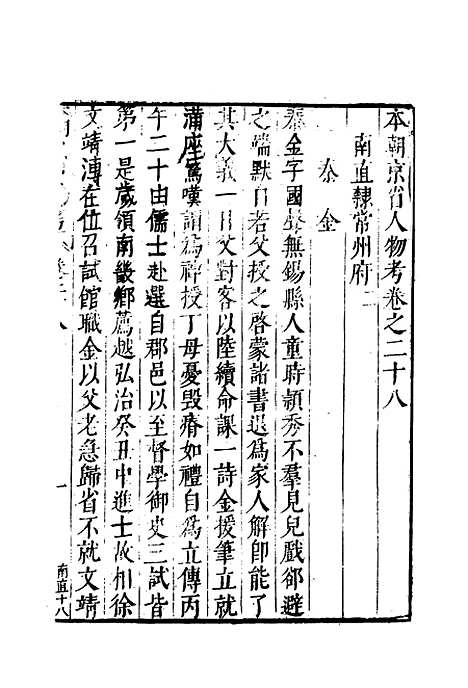 本朝京省人物考卷之二十八
南直隸常州府二
秦金
秦金字國聲無錫縣人童時頴秀不羣見兒戲郤避
之端默自若父授之啓蒙諸書退爲家人解卽能了
其大義一日父對客以陸續命課一詩金援筆立就
滿座驚嘆謂爲神授丁母憂毀瘠如禮自爲立傳丙
午二十由儒士赴選自郡邑以至督學御史三試皆
第一是歲領南畿鄉薦越弘治癸丑中進士故相徐
文靖溥在位召試館職金以父老急歸省不就文靖
一
南直十八